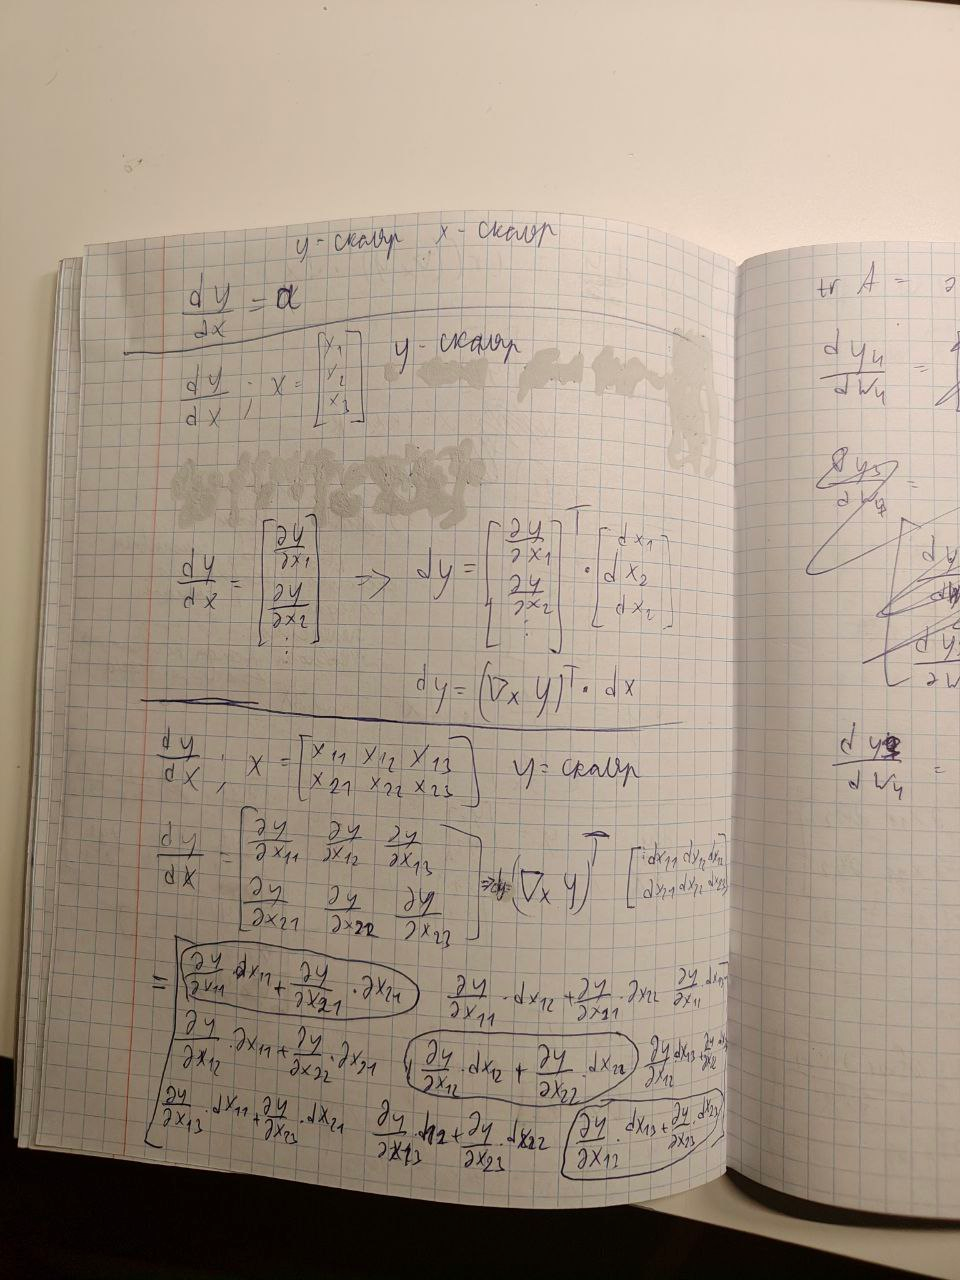 y - скаляр x - скаляр
dy/dx = a
dy/dx ; x = [x1 x2 x3] y - скаляр
dy/dx = [∂y/∂x1 ∂y/∂x2 ⋮] => dy = [∂y/∂x1 ∂y/∂x2 ⋮]^T · [dx1 dx2 dx2]
dy = (∇x y)^T · dx
dy/dx ; x = [x11 x12 x13
x21 x22 x23] y = скаляр
dy/dx = [∂y/∂x11 ∂y/∂x12 ∂y/∂x13
∂y/∂x21 ∂y/∂x22 ∂y/∂x23] => dy = (∇x y)^T [dx11 dx12 dx12
dx21 dx22 dx23]
= [∂y/∂x11 · dx11 + ∂y/∂x21 · ∂x21 ∂y/∂x11 · dx12 + ∂y/∂x21 · ∂x22 ∂y/∂x11 ·
∂y/∂x12 · ∂x11 + ∂y/∂x22 · ∂x21 ∂y/∂x12 · dx12 + ∂y/∂x22 · dx22 ∂y/∂x12 dx13 +
∂y/∂x13 · dx11 + ∂y/∂x23 · dx21 ∂y/∂x13 · + ∂y/∂x23 · dx22 ∂y/∂x13 · dx13 + ∂y/∂x23 · dx23
tr A =
dy4/dw4 =
∂y3/ =
=